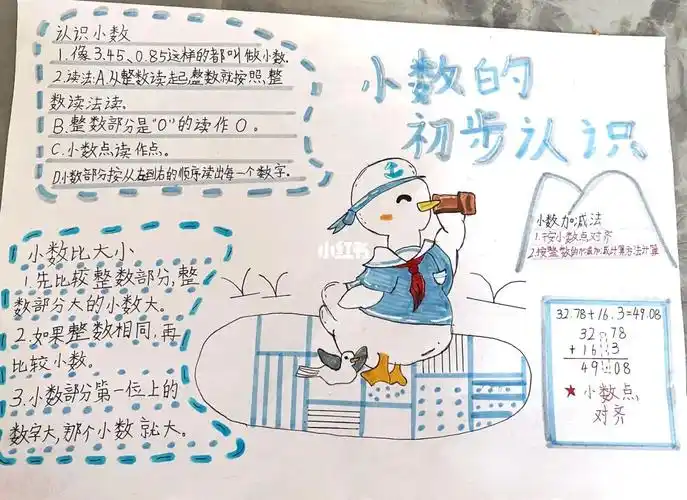 小数的
初步认识
认识小数
1.像3.45、0.85这样的都叫做小数.
2.读法:A.从整数读起,整数就按照整
数读法读.
B.整数部分是“0”的读作0。
C.小数点读作点.
D.小数部分按从左到右的顺序读出每一个数字.
小数比大小
1.先比较整数部分,整
数部分大的小数大。
2.如果整数相同,再
比较小数。
3.小数部分第一位上的
数字大,那个小数就大。
小红书
小数加减法
小数点对齐
2.按整数的加减计算方法计算
32.78+16.3=49.08
32.78
+ 16.3
49.08
★小数点
对齐